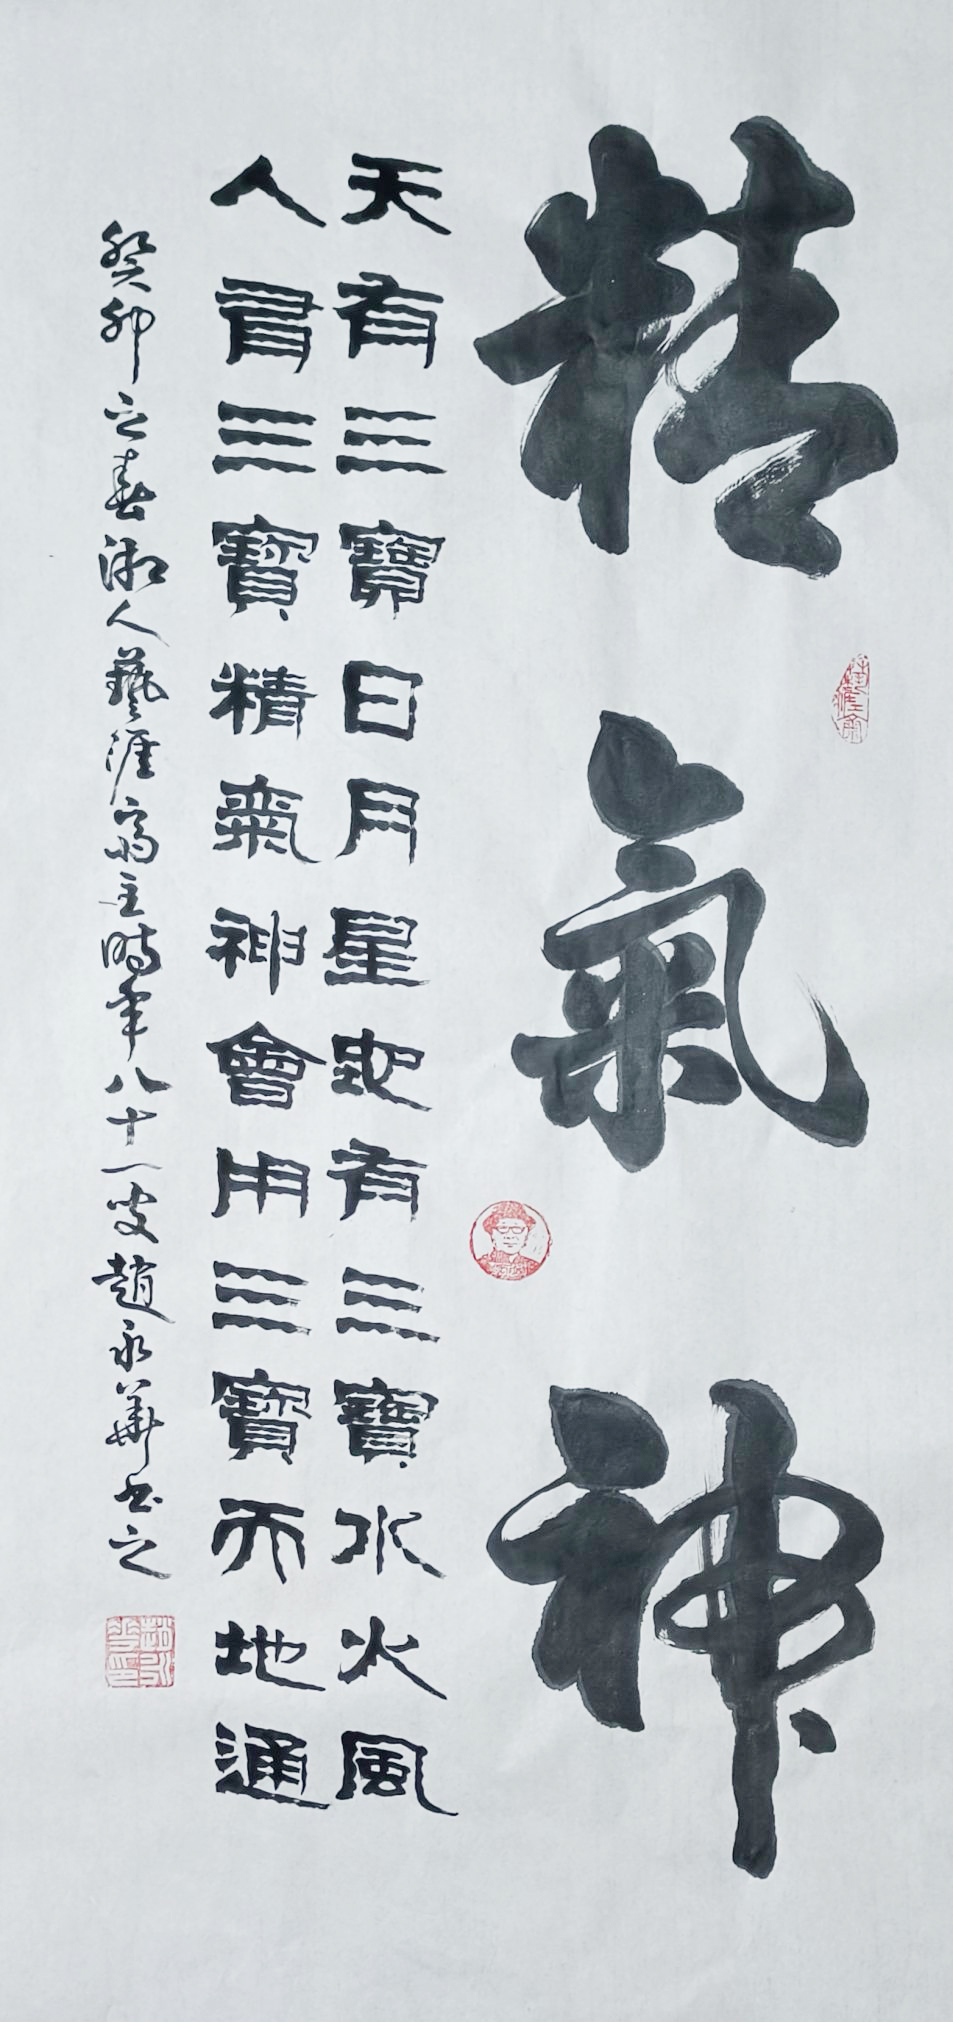 精氣神
天有三寶日月星地有三寶水火風
人有三寶精氣神會用三寶天地通
癸卯之春湘人藝涯齋主時年八十一叟趙永華书之
趙永華印